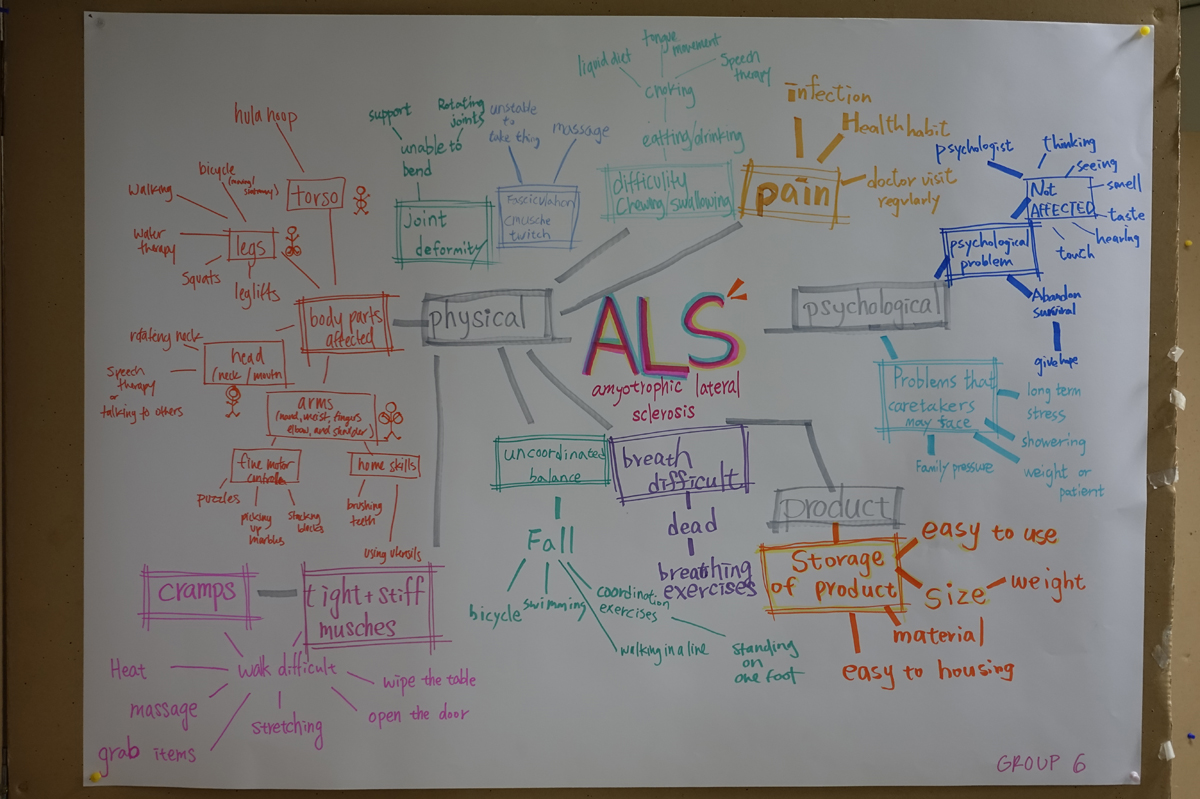 hula hoop
torso
bicycle
walking
water
therapy
legs
squats
leglifts
body parts
affected
rotating neck
head
(neck / mouth)
speech
therapy
or
talking to others
arms
elbow, and
fine motor
puzzles
picking
up
marbles
stacking
blocks
home skills
brushing
teeth
using utensils
support
Rotating
joints
unable to
bend
joint
deformity
unstable
to
take thing
massage
Fasciculation
twitch
liquid diet
tongue
movement
speech
therapy
choking
eatting/drinking
difficulity
Chewing swallowing
infection
Health habit
pain
doctor visit
regularly
physical
ALS
amyotrophic lateral
sclerosis
psychological
psychologist
thinking
seeing
smell
taste
hearing
touch
Not
AFFECTED
psychological
problem
Abandon
survival
give hope
Problems that
caretakers
may face
long term
stress
showering
weight or
patient
Family pressure
uncoordinated
balance
Fall
bicycle
swimming
coordination
exercises
walking in a line
standing
on
one foot
breath
difficult
dead
breathing
exercises
product
Storage
of product
easy to use
size
weight
material
easy to housing
cramps
tight + stiff
musches
walk difficult
Heat
massage
grab items
stretching
open the door
wipe the table
GROUP 6